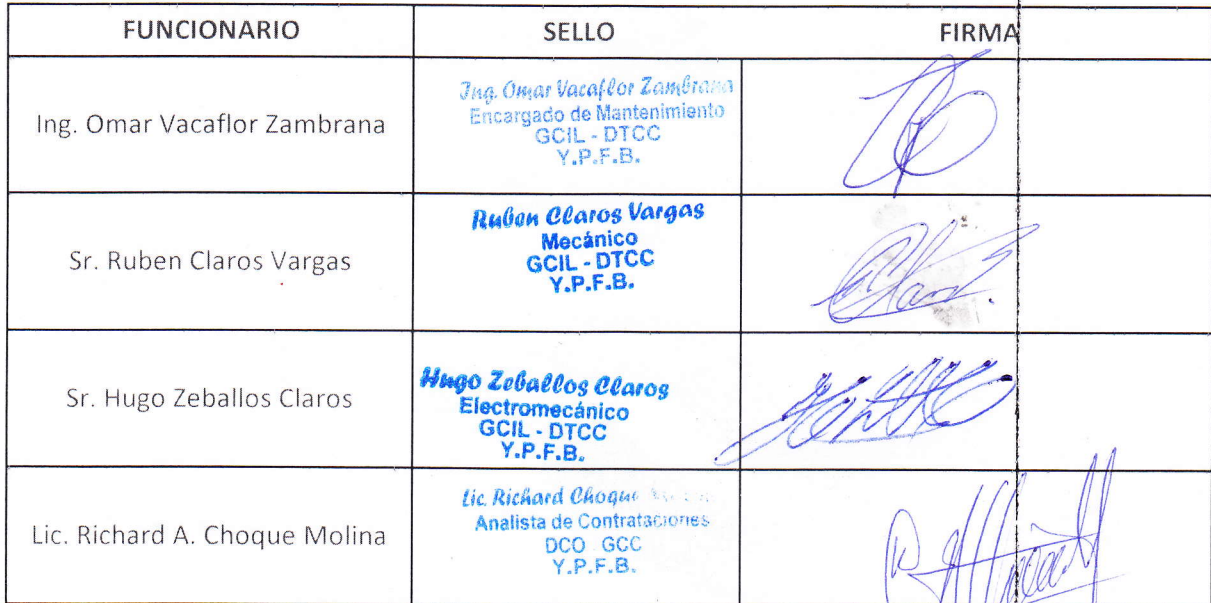 FUNCIONARIO SELLO FIRMA
Ing. Omar Vacaflor Zambrana
Ing. Omar Vacaflor Zambrana
Encargado de Mantenimiento
GCIL - DTCC
Y.P.F.B.
Sr. Ruben Claros Vargas
Ruben Claros Vargas
Mecánico
GCIL - DTCC
Y.P.F.B.
Sr. Hugo Zeballos Claros
Hugo Zeballos Claros
Electromecánico
GCIL - DTCC
Y.P.F.B.
Lic. Richard A. Choque Molina
Lic. Richard Choque
Analista de Contrataciones
DCO GCC
Y.P.F.B.